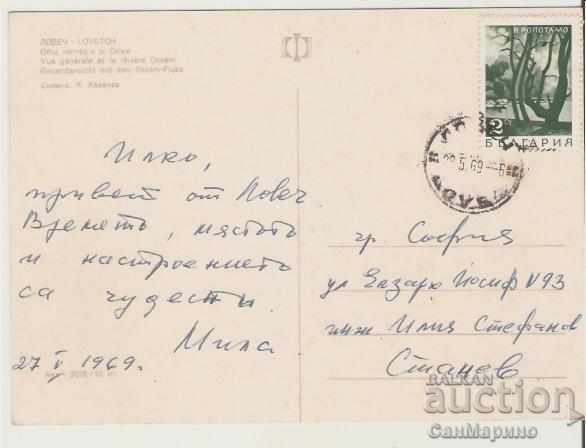 ЛОВЕЧ - LOVETCH
Общ изглед и р. Осъм
Vue générale et la rivière Osam
Gesamtansicht mit dem Osam-Fluss
Снимка:
Илко,
привет от Ловеч
Времето, мястото
и настроението
са чудесни.
Мила
27 V 1969.
Р. РОПОТАМО
2
БЪЛГАРИЯ
5.69
гр София
ул Екзарх Иосиф N 93
инж Илия Стефанов
Станев
BALKAN
auction
СанМарино